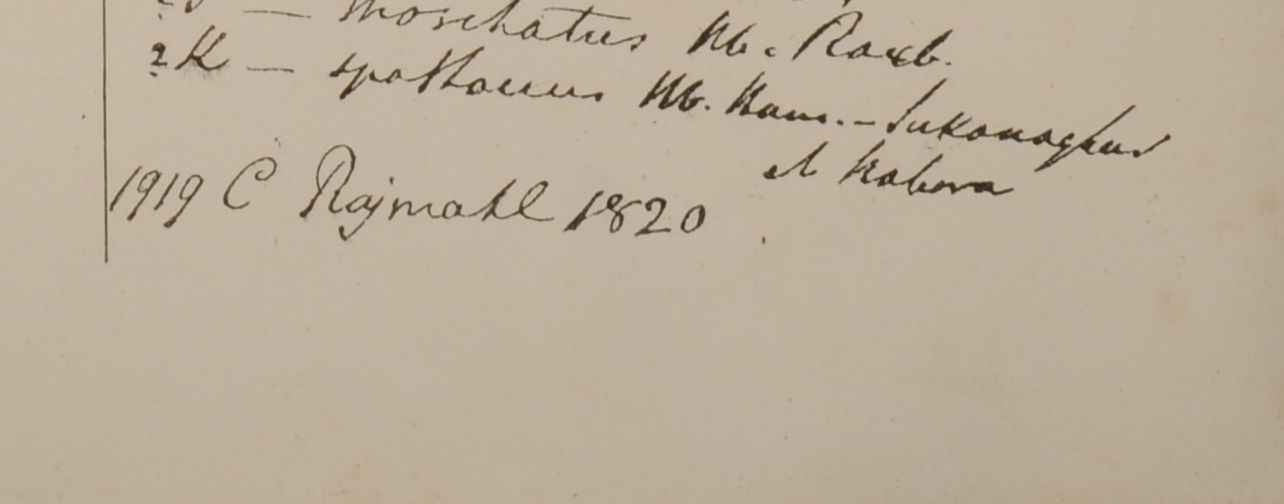 — moschatus Hb. Roxb.
?K — spathaceus Hb. Ham. – Sukanaghur
et Kabora
1919 C Rajmahl 1820